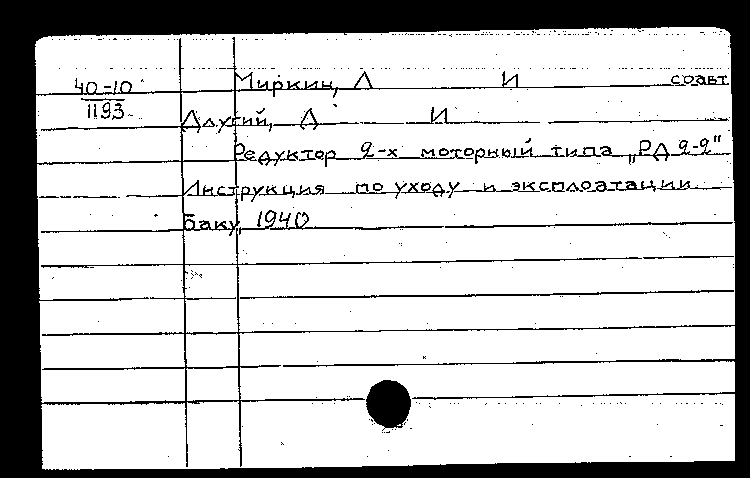 40-10
1193
Миркин, Л И соавт
Долгий, Д И
Редуктор 2-х моторный типа „РД 2-2"
Инструкция по уходу и эксплоатации
Баку, 1940